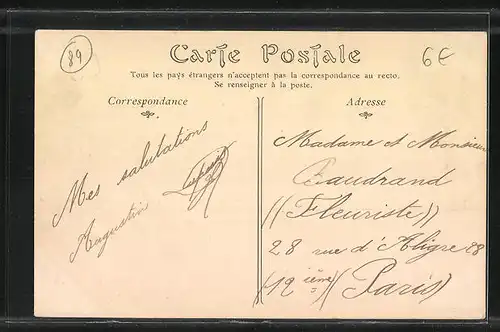 89
6€
Carte Postale
Tous les pays étrangers n'acceptent pas la correspondance au recto.
Se renseigner à la poste.
Correspondance
Adresse
Mes salutations
Augustin
Madame et Monsieur
Baudrand
((Fleuriste))
28 rue d'Aligre 28
(12 ième) (Paris)